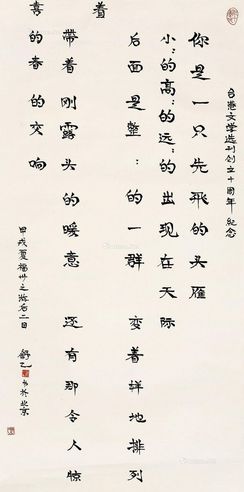 台港文学选刊创立十周年纪念
你是一只先飞的头雁
小:的高:的远:的出现在天际
后面是整:的一群 变着样地排列
着
带着刚露头的暖意 还有那令人惊
喜的春的交响
甲戌夏福州之游后二日
舒乙书于北京